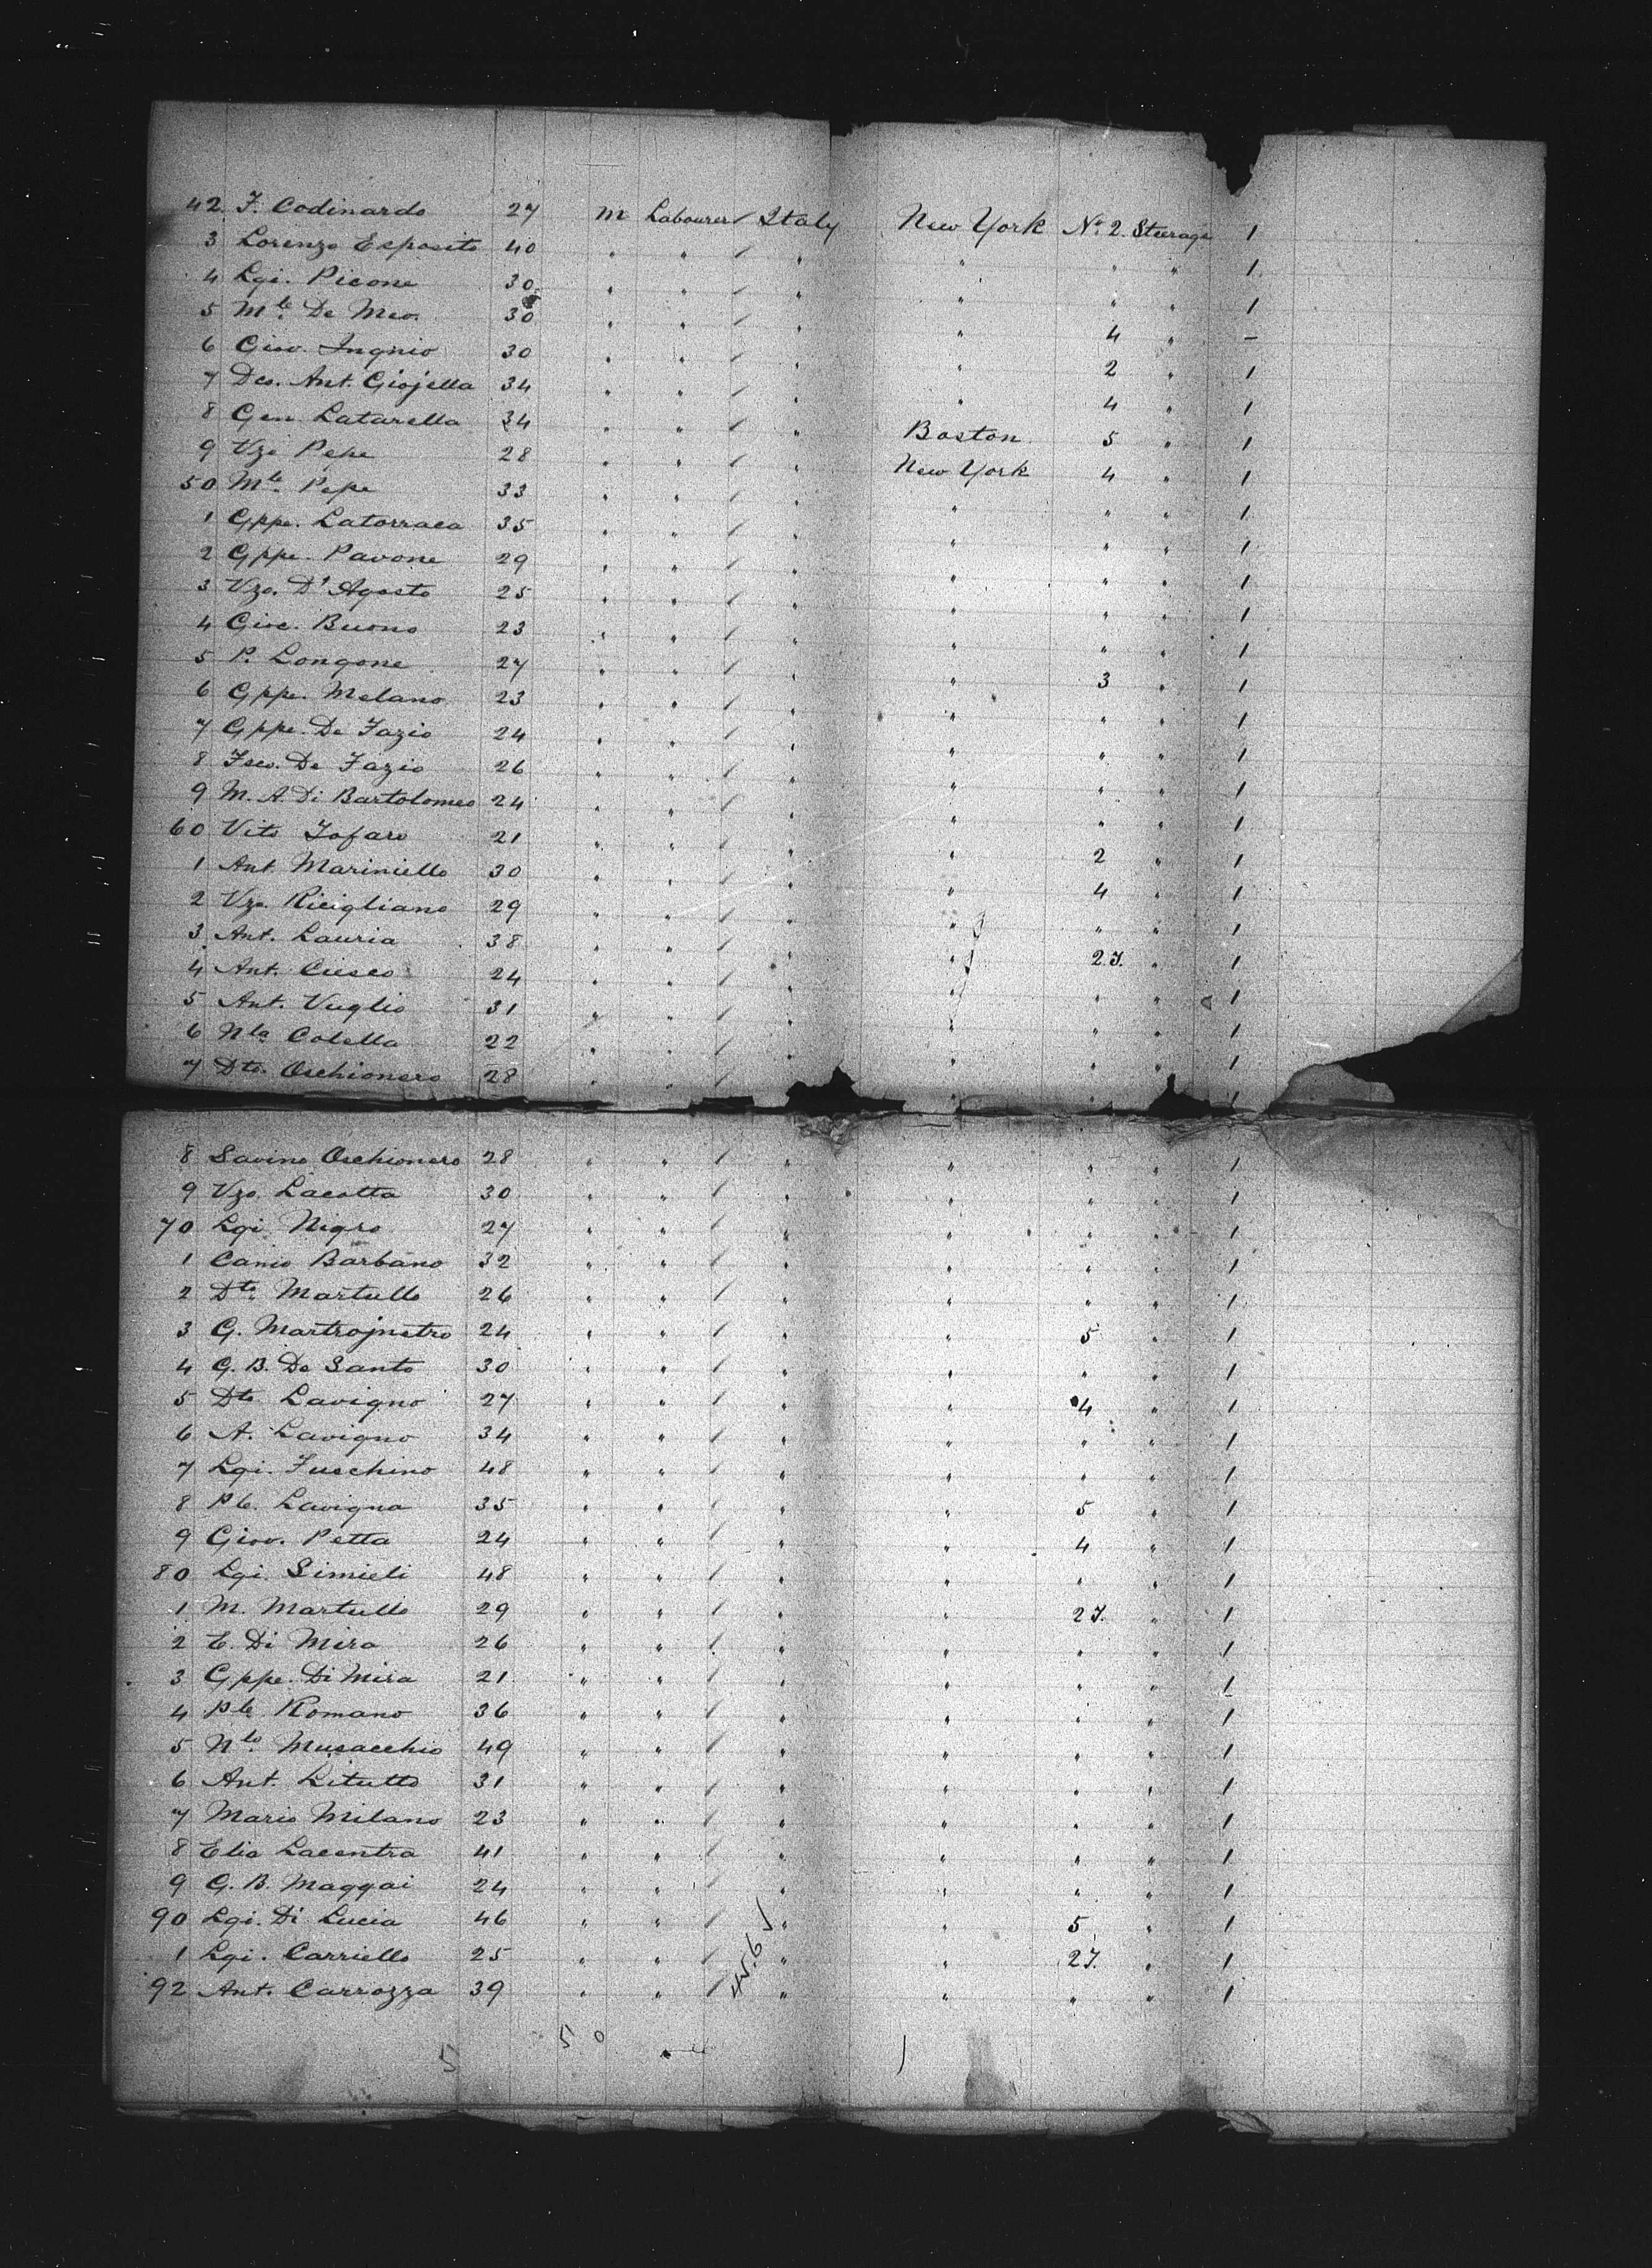 42 F. Codinardo 27 m Labourer / Italy New York No. 2. Steerage 1
3 Lorenzo Esposito 40 " " / " " " " 1
4 Lgi. Picone 30 " " / " " " " 1
5 Mle. De Meo. 30 " " / " " 4 " –
6 Giov. Ingnio 30 " " / " " 2 " 1
7 Dco. Ant. Giojella 34 " " / " " 4 " 1
8 Gen. Latarella 34 " " / " Boston 5 " 1
9 Vzo Pepe 28 " " / " New York 4 " 1
50 Mle. Pepe 33 " " / " " " " 1
1 Gppe. Latorraca 35 " " / " " " " 1
2 Gppe. Pavone 29 " " / " " " " 1
3 Vzo. D'Agosto 25 " " / " " " " 1
4 Giov. Buono 23 " " / " " " " 1
5 P. Longone 27 " " / " " 3 " 1
6 Gppe. Melano 23 " " / " " " " 1
7 Gppe. De Fazio 24 " " / " " " " 1
8 Fsco. De Fazio 26 " " / " " " " 1
9 M. A. Di Bartolomeo 24 " " / " " " " 1
60 Vito Tofaro 21 " " / " " 2 " 1
1 Ant. Mariniello 30 " " / " " 4 " 1
2 Vzo. Ricigliano 29 " " / " " " " 1
3 Ant. Lauria 38 " " / " " 2.F. " 1
4 Ant. Ciesco 24 " " / " " " " 1
5 Ant. Vuglio 31 " " / " " " " 1
6 Nla Colella 22 " " / " " " " 1
7 Dto. Oschionero 28 " " / " " " " 1
8 Savino Oschionero 28 " " / " " " " 1
9 Vzo. Lacotta 30 " " / " " " " 1
70 Lgi Nigro 27 " " / " " " " 1
1 Canio Barbano 32 " " / " " " " 1
2 Dto. Martullo 26 " " / " " " " 1
3 G. Martrojnetro 24 " " / " " 5 " 1
4 G. B. De Santo 30 " " / " " " " 1
5 Dto Lavigno 27 " " / " " 4 " 1
6 A. Lavigno 34 " " / " " " " 1
7 Lgi. Fuschino 48 " " / " " " " 1
8 Plo. Lavigna 35 " " / " " 5 " 1
9 Giov. Petta 24 " " / " " 4 " 1
80 Lgi. Simieli 48 " " / " " " " 1
1 M. Martullo 29 " " / " " 2F. " 1
2 E. Di Mira 26 " " / " " " " 1
3 Gppe. Di Mira 21 " " / " " " " 1
4 Plo Romano 36 " " / " " " " 1
5 Nlo. Musacchio 49 " " / " " " " 1
6 Ant. Litutto 31 " " / " " " " 1
7 Mario Milano 23 " " / " " " " 1
8 Elia Lacentra 41 " " / " " " " 1
9 G. B. Maggai 24 " " / " " " " 1
90 Lgi. Di Lucia 46 " " / " " 5 " 1
1 Lgi. Carriello 25 " " / " " 2F. " 1
92 Ant. Carrozza 39 " " / " " " " 1
5 0
5